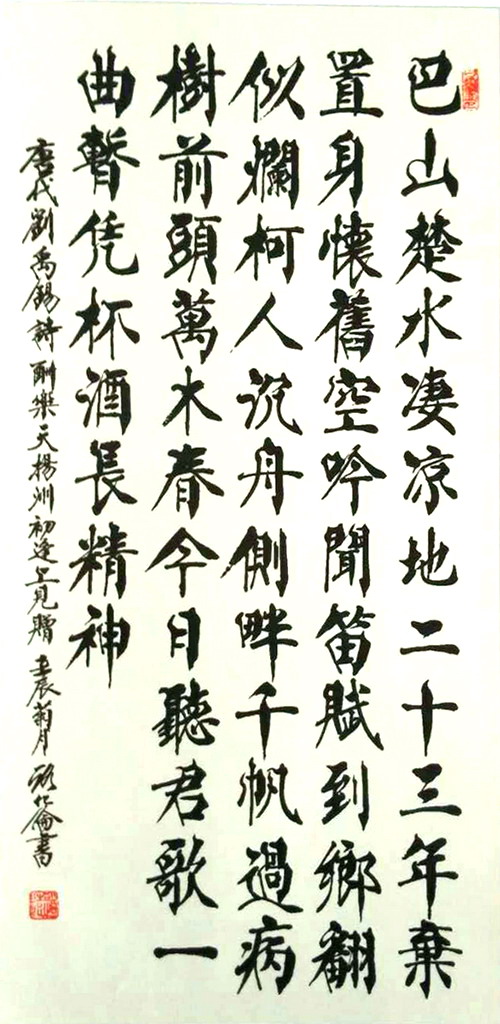 巴山楚水凄凉地二十三年棄
置身懷舊空吟聞笛賦到鄉翻
似爛柯人沉舟側畔千帆過病
樹前頭萬木春今日聽君歌一
曲暫凭杯酒長精神
唐代劉禹錫詩酬樂天揚州初逢上見贈 壬辰菊月 書